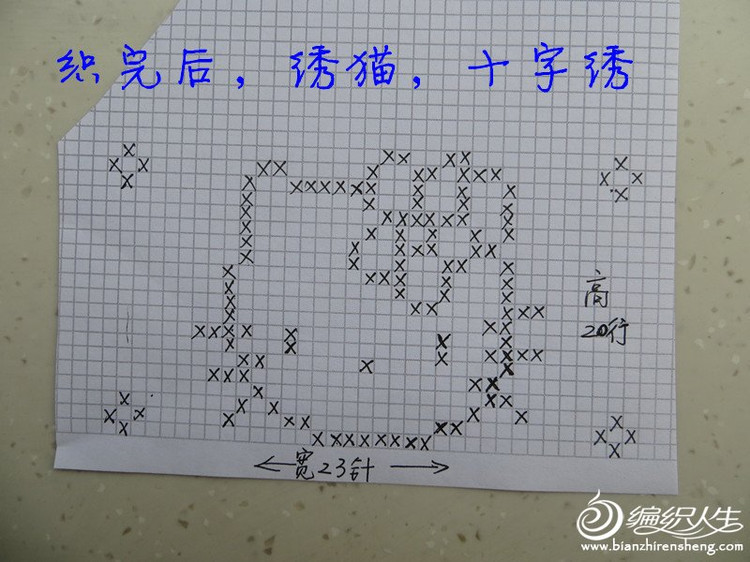 织完后，绣猫，十字绣
高
20行
宽23针
编织人生
www.bianzhirensheng.com